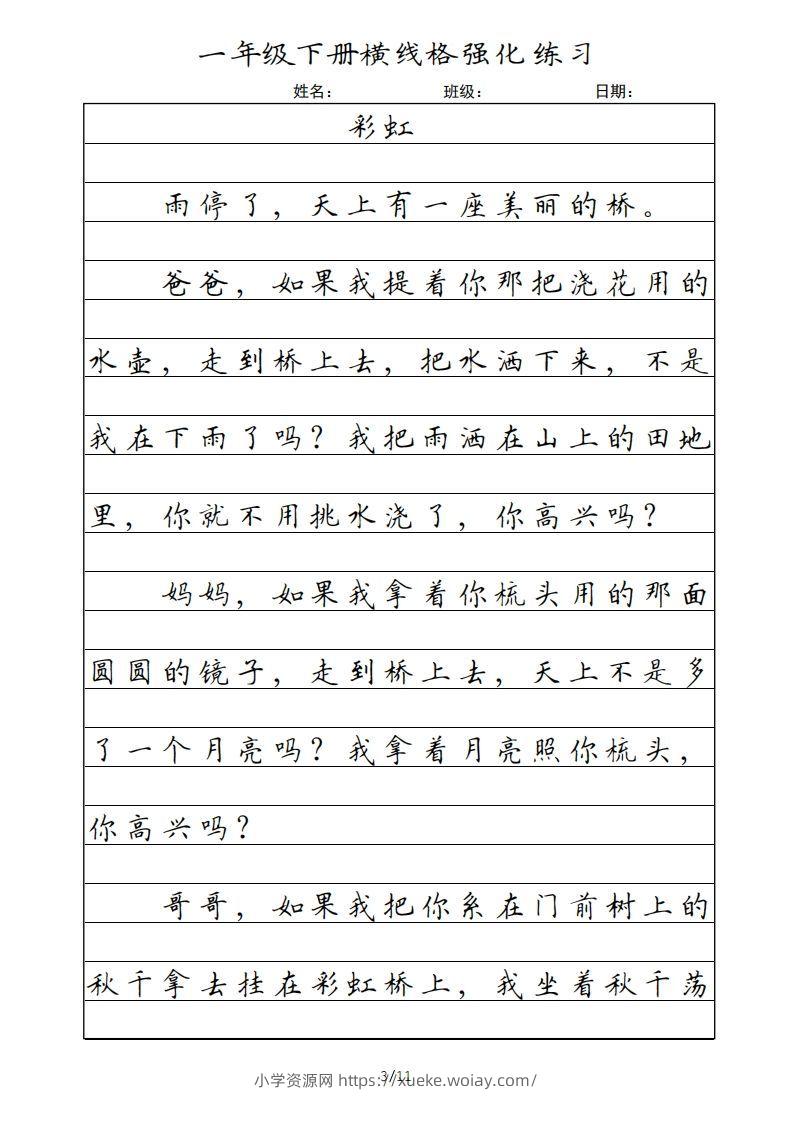 一年级下册横线格强化练习
姓名： 班级： 日期：
彩虹
雨停了，天上有一座美丽的桥。
爸爸，如果我提着你那把浇花用的
水壶，走到桥上去，把水洒下来，不是
我在下雨了吗？我把雨洒在山上的田地
里，你就不用挑水浇了，你高兴吗？
妈妈，如果我拿着你梳头用的那面
圆圆的镜子，走到桥上去，天上不是多
了一个月亮吗？我拿着月亮照你梳头，
你高兴吗？
哥哥，如果我把你系在门前树上的
秋千拿去挂在彩虹桥上，我坐着秋千荡
3/11
小学资源网 https://xueke.woiay.com/